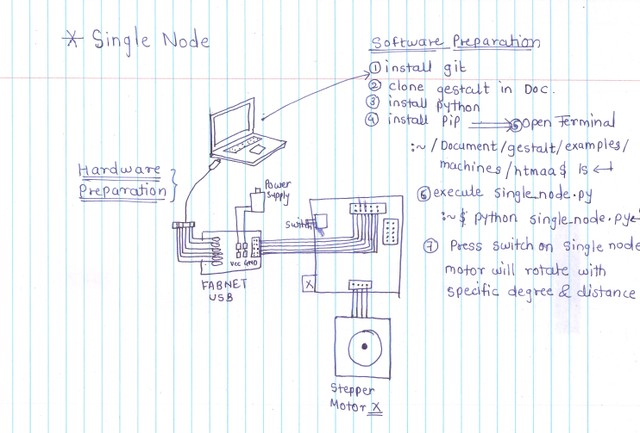 * Single Node
Software Preparation
① install git
② clone gestalt in Doc.
③ install python
④ install pip ⟹ ⑤ Open Terminal
:~ /Document/gestalt/examples/
machines/htmaa$ ls ↵
⑥ execute single_node.py
:~$ python single_node.py↵
⑦ Press switch on single node
motor will rotate with
specific degree & distance
Hardware
Preparation
Power
Supply
Switch
VCC GND
FABNET
USB
X
Stepper
Motor X